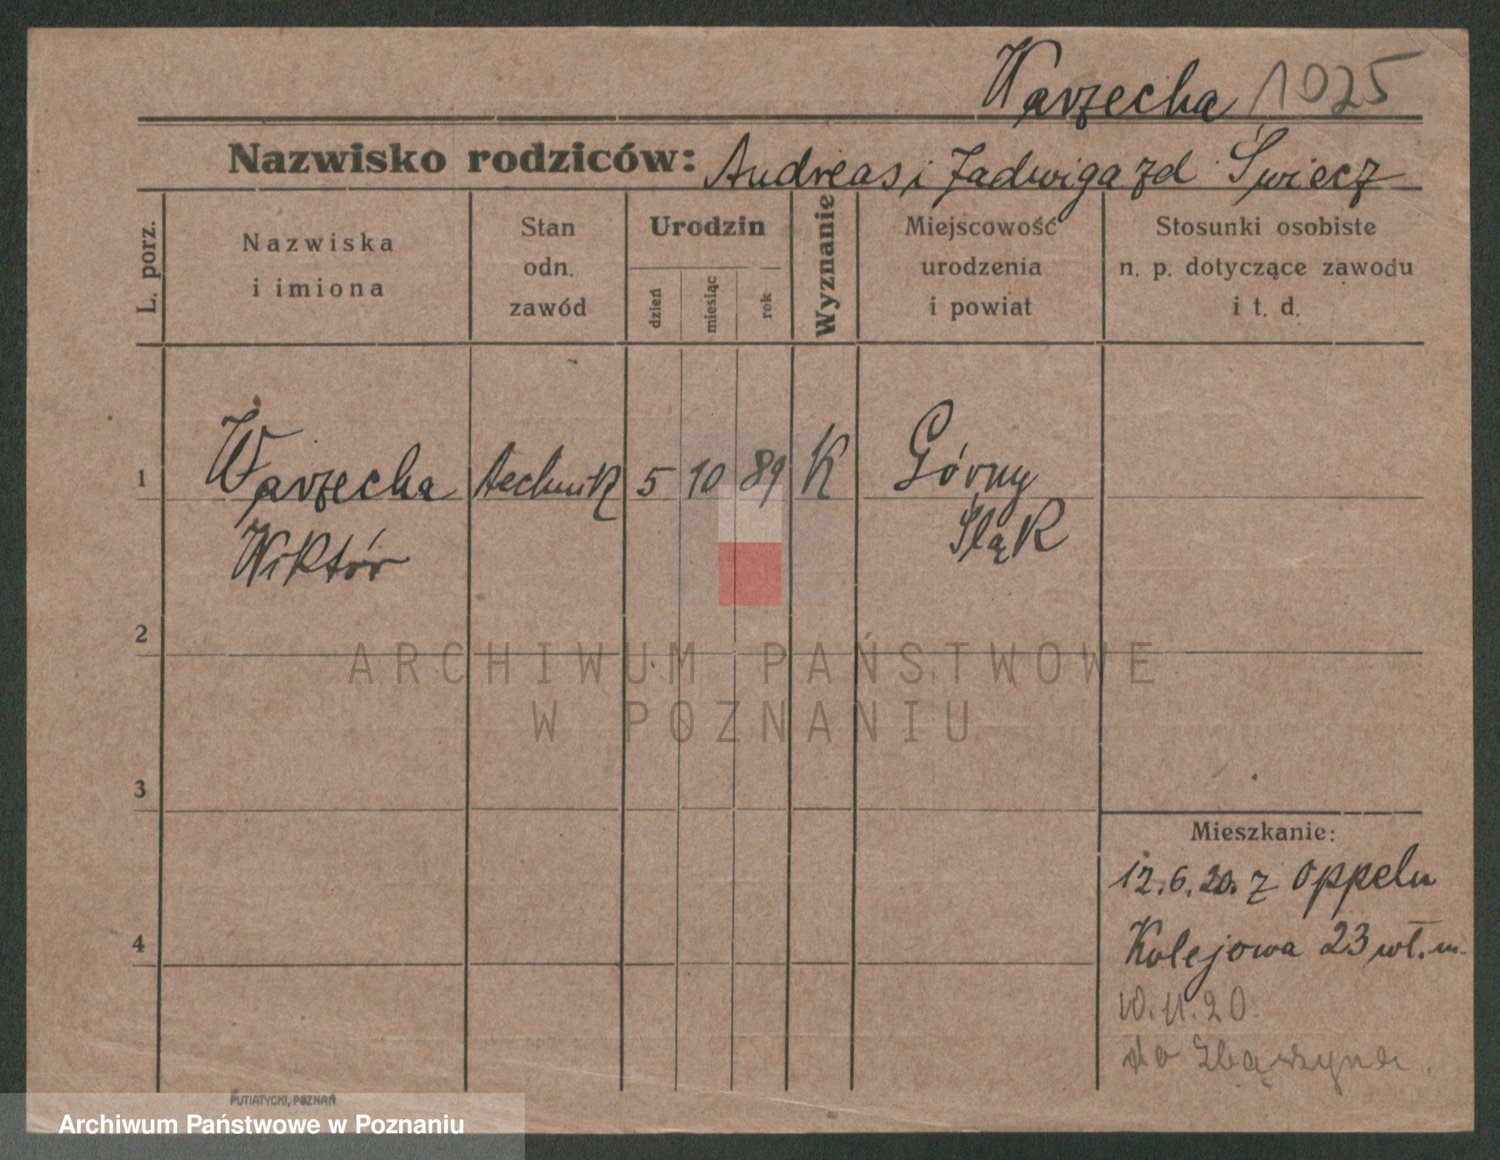 Warzecha 1025
Nazwisko rodziców: Andreas i Jadwiga zd Świecz
L. porz.
Nazwiska
i imiona
Stan
odn.
zawód
Urodzin
dzień
miesiąc
rok
Wyznanie
Miejscowość
urodzenia
i powiat
Stosunki osobiste
n. p. dotyczące zawodu
i t. d.
1 Warzecha technik 5 10 89 K Górny
Wiktór Śląk
2
ARCHIWUM PAŃSTWOWE
W POZNANIU
3
Mieszkanie:
12.6.20. z Oppeln
4 Kolejowa 23 wł. m.
10.11.20.
do Zbąszyna.
PUTIATYCKI, POZNAŃ
Archiwum Państwowe w Poznaniu